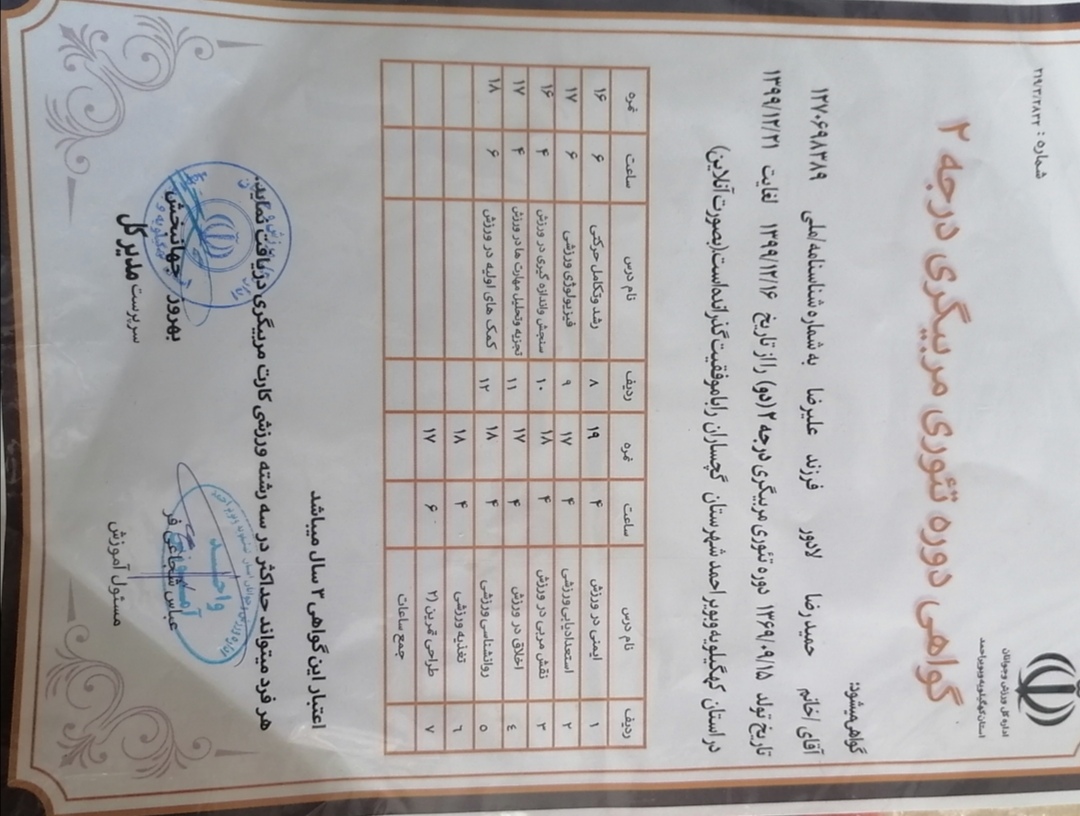 اداره کل ورزش و جوانان
استان کهگیلویه و بویراحمد
شماره : ۲۱۹/۳/۲۸۳۲
گواهی دوره تئوری مربیگری درجه ۲
گواهی میشود:
آقای/خانم حمیدرضا لادور فرزند علیرضا به شماره شناسنامه/ملی ۱۲۷۰۶۹۸۳۸۹
تاریخ تولد ۱۳۶۹/۰۹/۱۵ دوره تئوری مربیگری درجه ۲ (دو) را از تاریخ ۱۳۹۹/۱۲/۱۶ لغایت ۱۳۹۹/۱۲/۲۱
در استان کهگیلویه وبویر احمد شهرستان گچساران را باموفقیت گذرانده است(بصورت آنلاین)
ردیف نام درس ساعت نمره ردیف نام درس ساعت نمره
۱ ایمنی در ورزش ۴ ۱۹ ۸ رشد وتکامل حرکتی ۶ ۱۶
۲ استعدادیابی ورزشی ۴ ۱۷ ۹ فیزیولوژی ورزشی ۶ ۱۷
۳ نقش مربی در ورزش ۴ ۱۸ ۱۰ سنجش واندازه گیری در ورزش ۴ ۱۶
٤ اخلاق در ورزش ۴ ۱۷ ۱۱ تجزیه وتحلیل مهارت ها در ورزش ۴ ۱۷
۵ روانشناسی ورزشی ۴ ۱۸ ۱۲ کمک های اولیه در ورزش ۶ ۱۸
٦ تغذیه ورزشی ۴ ۱۸
۷ طراحی تمرین (۲ ۶ ۱۷
جمع ساعات
اعتبار این گواهی ۳ سال میباشد
هر فرد میتواند حداکثر در سه رشته ورزشی کارت مربیگری دریافت نماید.
واحد
آموزش
عباس شجاعی فر
مسئول آموزش
بهروز جهانبخش
سرپرست مدیرکل